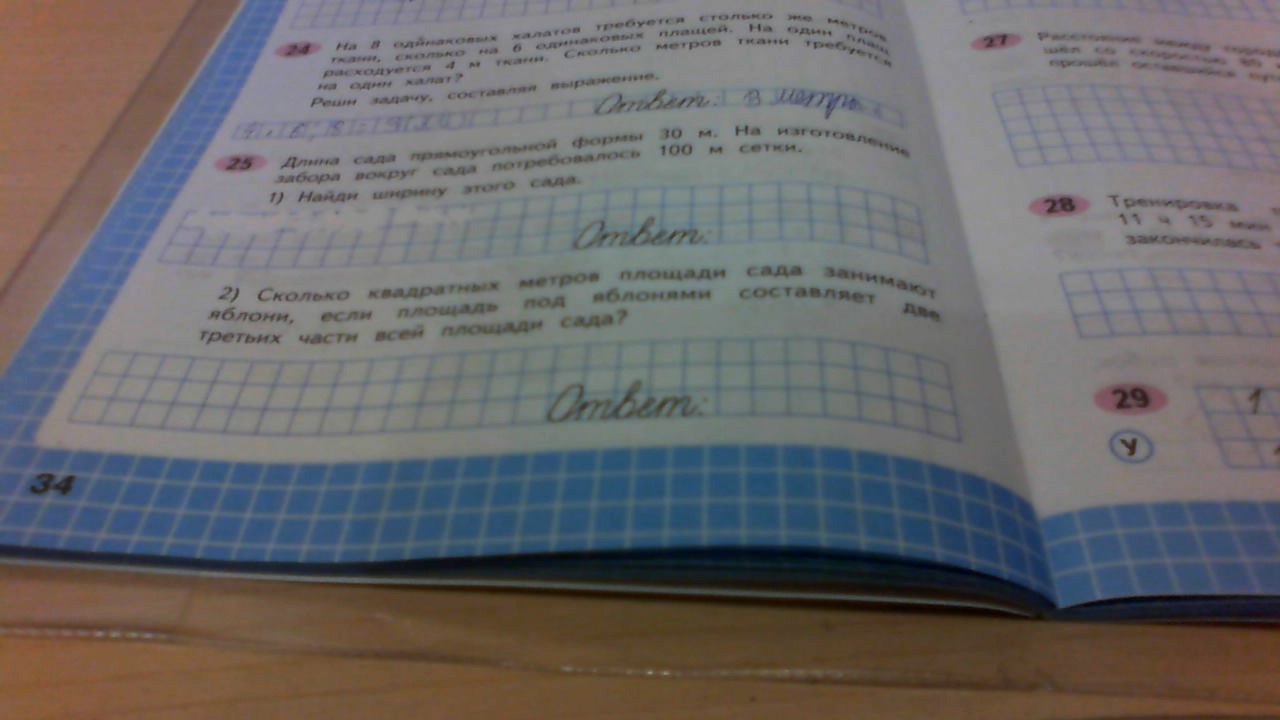 24 На 8 одинаковых халатов требуется столько же метров
ткани, сколько на 6 одинаковых плащей. На один плащ
расходуется 4 м ткани. Сколько метров ткани требуется
на один халат?
Реши задачу, составляя выражение.
Ответ: 3 метра.
25 Длина сада прямоугольной формы 30 м. На изготовление
забора вокруг сада потребовалось 100 м сетки.
1) Найди ширину этого сада.
Ответ:
2) Сколько квадратных метров площади сада занимают
яблони, если площадь под яблонями составляет две
третьих части всей площади сада?
Ответ:
34
27 Расстояние между
шёл со скоростью
прошёл оставшийся
28 Тренировка
11 ч 15 мин
закончилась
29 1
У